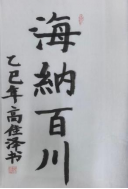 海納百川
乙巳年高仕泽书